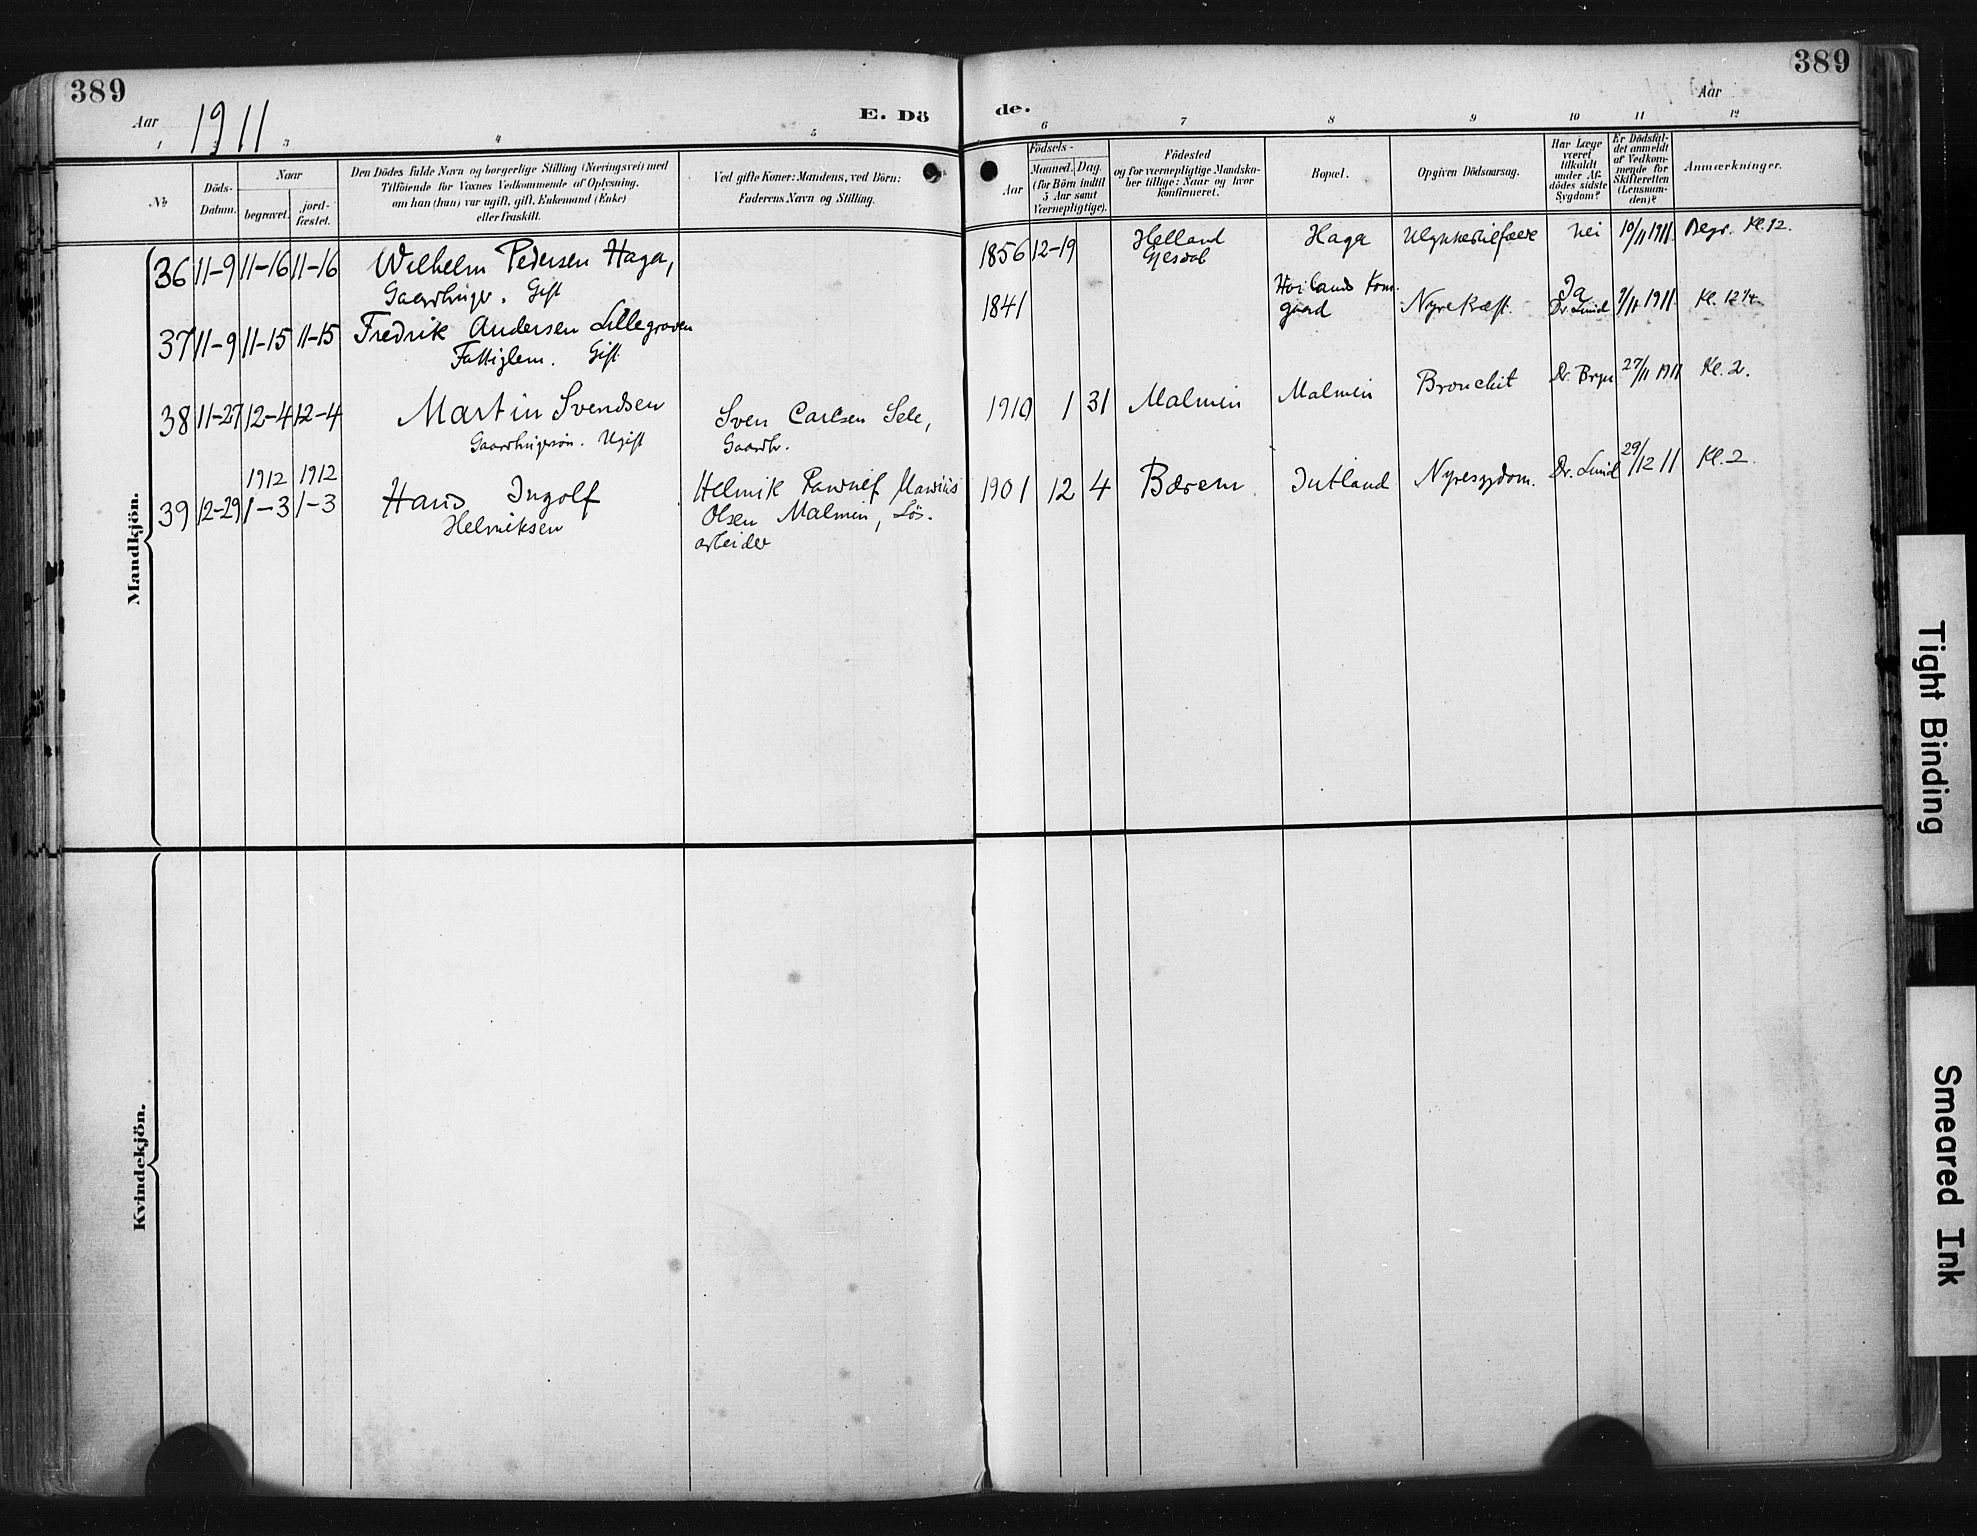 389
Aar 1911
E. Dö
de.
389
Aar
1 2 3 4 5 6 7 8 9 10 11 12
№
Döds-
Datum.
Naar
begravet.
jord-
fæstet.
Den Dödes fulde Navn og borgerlige Stilling (Næringsvei) med
Tilföiende for Voxnes Vedkommende af Oplysning,
om han (hun) var ugift, gift, Enkemand (Enke)
eller fraskilt.
Ved gifte Koner: Mandens, ved Börn:
Faderens Navn og Stilling.
Födsels-
Aar
Maaned. Dag.
(for Börn indtil
5 Aar samt
Værnepligtige).
Födested
og for værnepligtige Mandska-
ber tillige: Naar og hvor
konfirmeret.
Bopæl.
Opgiven Dödsaarsag.
Har Læge
været
tilkaldt
under Af-
dödes sidste
Sygdom?
Er Dödsfal-
det anmeldt
af Vedkom-
mende for
Skifteretten
(Lensman-
den)?
Anmærkninger.
Mandkjön.
36 11-9 11-16 11-16 Wilhelm Pedersen Haga,
Gaardbruger. Gift
1856 12-19 Helland
Gjesdal
Haga Ulykkestilfælde Nei 10/11 1911. Begr. Kl. 12.
37 11-9 11-15 11-15 Fredrik Andersen Lillegraven
Fattiglem. Gift
1841
Høilands Kom.
gaard
Nyrekræft. Ja
Dr. Lund 9/11 1911 Kl. 12 1/2
38 11-27 12-4 12-4 Martin Svendsen
Gaardbrugersøn. Ugift
Sven Carlsen Sele,
Gaardbr.
1910 1 31 Malmin Malmin Bronchit Dr. Bryn 27/11 1911 Kl. 2.
1912 1912
39 12-29 1-3 1-3 Hans Ingolf
Helmiksen
Helmik Marius
Olsen Malmin, Løs-
arbeider
1901 12 4 Bærem Jutland Nyresygdom. Dr. Lund 29/12 11 Kl. 2.
Kvindekjön.
Tight Binding
Smeared Ink